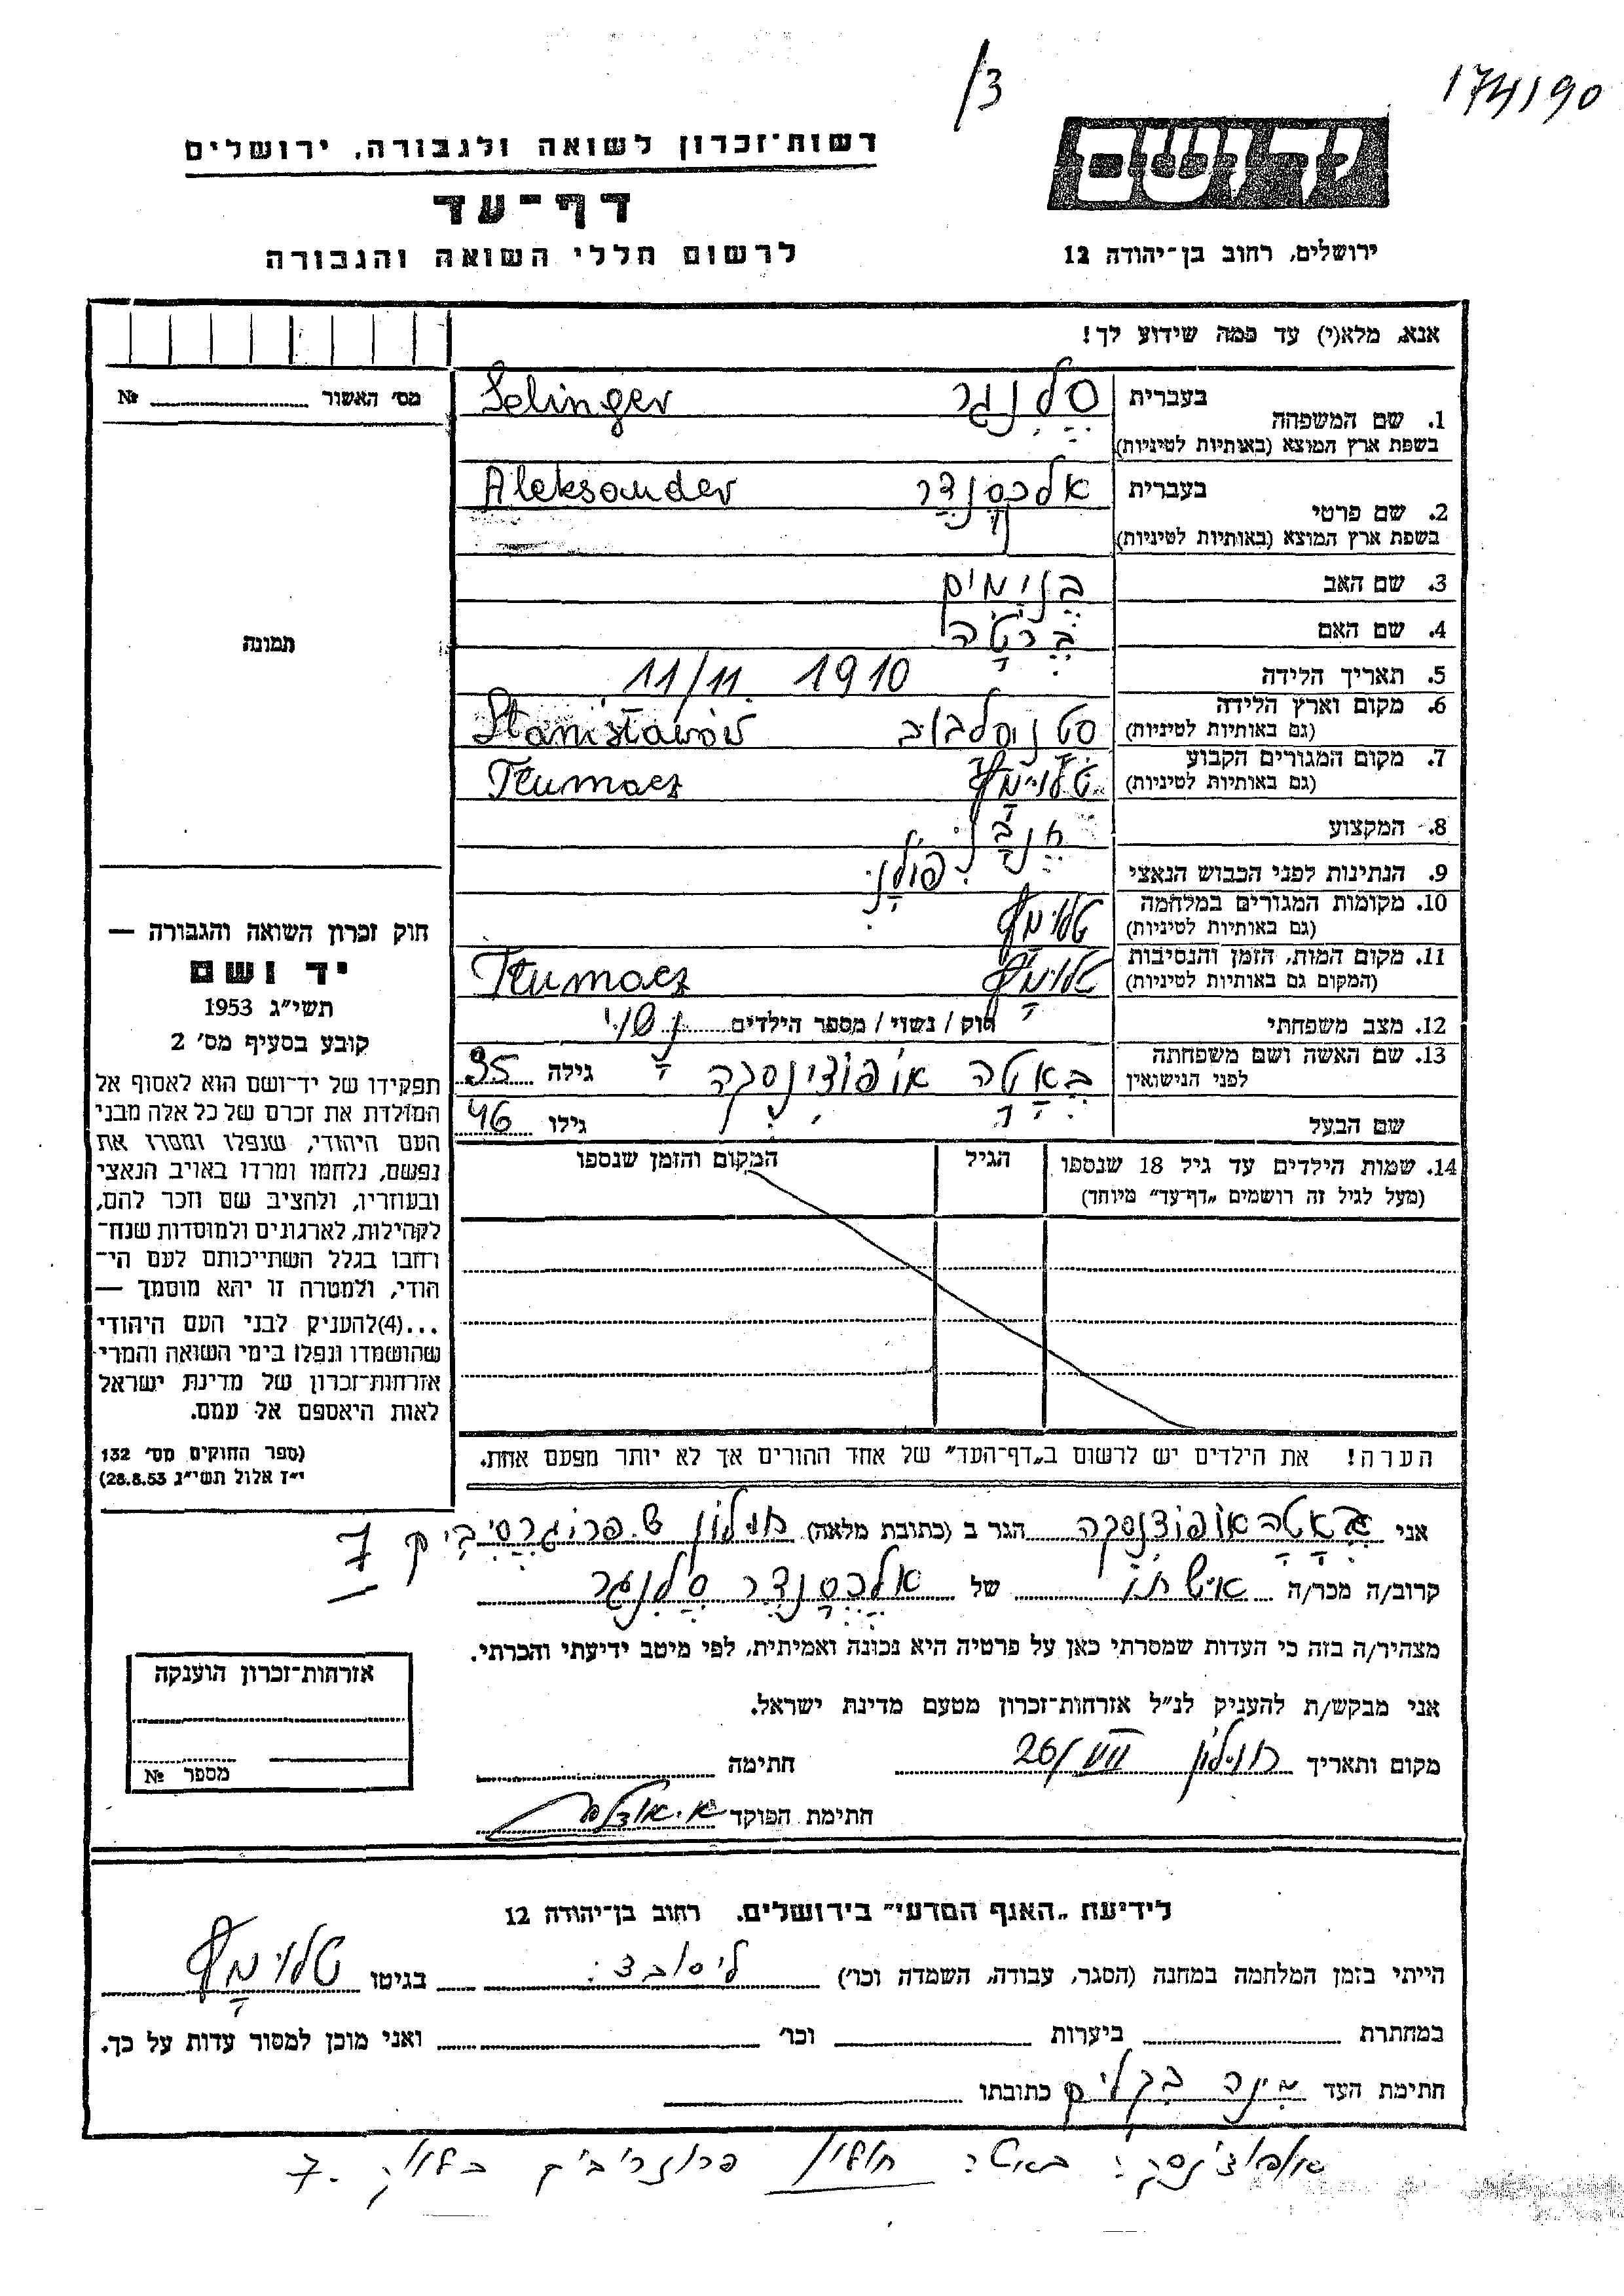 /3
174/90
יד ושם
רשות-זכרון לשואה ולגבורה, ירושלים
דף-עד
לרשום חללי השואה והגבורה
ירושלים, רחוב בן-יהודה 12
אנא, מלא(י) עד כמה שידוע לך!
מס' האשור № 
1. שם המשפחה בעברית סלנגר Selinger
בשפת ארץ המוצא (באותיות לטיניות)
2. שם פרטי בעברית אלכסנדר Aleksander
בשפת ארץ המוצא (באותיות לטיניות)
3. שם האב בנימין
4. שם האם ברטה
5. תאריך הלידה 11/11. 1910
6. מקום וארץ הלידה סטניסלבוב Stanisławów
(גם באותיות לטיניות)
7. מקום המגורים הקבוע טלומץ Tłumacz
(גם באותיות לטיניות)
8. המקצוע
9. הנתינות לפני הכבוש הנאצי פולני
10. מקומות המגורים במלחמה טלומץ
(גם באותיות לטיניות)
11. מקום המות, הזמן והנסיבות טלומץ Tłumacz
(המקום גם באותיות לטיניות)
12. מצב משפחתי רווק / נשוי / מספר הילדים נשוי
13. שם האשה ושם משפחתה באטה אופוצינסקה גילה 35
לפני הנישואין
שם הבעל גילו 46
14. שמות הילדים עד גיל 18 שנספו הגיל המקום והזמן שנספו
(מעל לגיל זה רושמים "דף-עד" מיוחד)
הערה! את הילדים יש לרשום ב"דף-העד" של אחד ההורים אך לא יותר מפעם אחת.
תמונה
חוק זכרון השואה והגבורה —
יד ושם
תשי"ג 1953
קובע בסעיף מס' 2
תפקידו של יד-ושם הוא לאסוף אל
המולדת את זכרם של כל אלה מבני
העם היהודי, שנפלו ומסרו את
נפשם, נלחמו ומרדו באויב הנאצי
ובעוזריו, ולהציב שם וזכר להם,
לקהילות, לארגונים ולמוסדות שנח-
רחבו בגלל השתייכותם לעם הי-
הודי, ולמטרה זו יהא מוסמך —
...(4)להעניק לבני העם היהודי
שהושמדו ונפלו בימי השואה והמרי
אזרחות-זכרון של מדינת ישראל
לאות היאספם אל עמם.
(ספר החוקים מס' 132
י"ז אלול תשי"ג 28.8.53)
אני באטה אופוצנסקה הגר ב (כתובת מלאה) חולון ש. פרוגרסיביק 7
קרוב/ה מכר/ה אישתו של אלכסנדר סלנגר
מצהיר/ה בזה כי העדות שמסרתי כאן על פרטיה היא נכונה ואמיתית, לפי מיטב ידיעתי והכרתי.
אני מבקש/ת להעניק לנ"ל אזרחות-זכרון מטעם מדינת ישראל.
מקום ותאריך חולון 26/VII חתימה
חתימת הפוקד
אזרחות-זכרון הוענקה
מספר №
לידיעת "האגף המדעי" בירושלים, רחוב בן-יהודה 12
הייתי בזמן המלחמה במחנה (הסגר, עבודה, השמדה וכו') בגיטו טלומץ
במחתרת ביערות וכו' ואני מוכן למסור עדות על כך.
חתימת העד כתובתו
באטה חולון 7